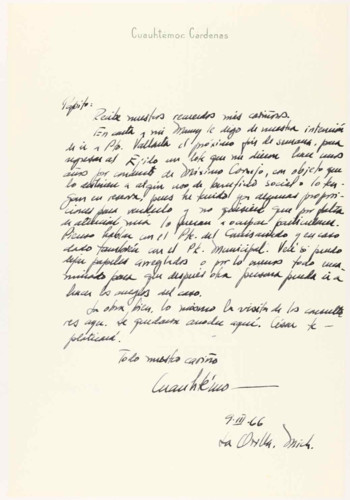 Cuauhtémoc Cárdenas
Papito:
Recibe nuestros recuerdos más cariñosos.
En carta a mi Mamy le digo de nuestra intención
de ir a Pto. Vallarta el próximo fin de semana, para
regresar al Ejido un lote que me dieron hace unos
años por conducto de Máximo Cornejo, con objeto que
lo destinen a algún uso de beneficio social o lo
en reserva, pues he tenido ya algunas proposi-
ciones para y no que por falta
de atención lo
Pienso hablar con el Pte. del Comisariado y en caso
dado también con el Pte. Municipal. si puedo
dejar papeles arreglados o por lo menos todo
para que después otra persona pueda ir a
hacer los del caso.
La obra bien, lo mismo la visita de los
aquí. Se quedaron anoche aquí. César te
platicará.
Todo nuestro cariño
Cuauhtémoc
9-III-66
La Orilla, Mich.